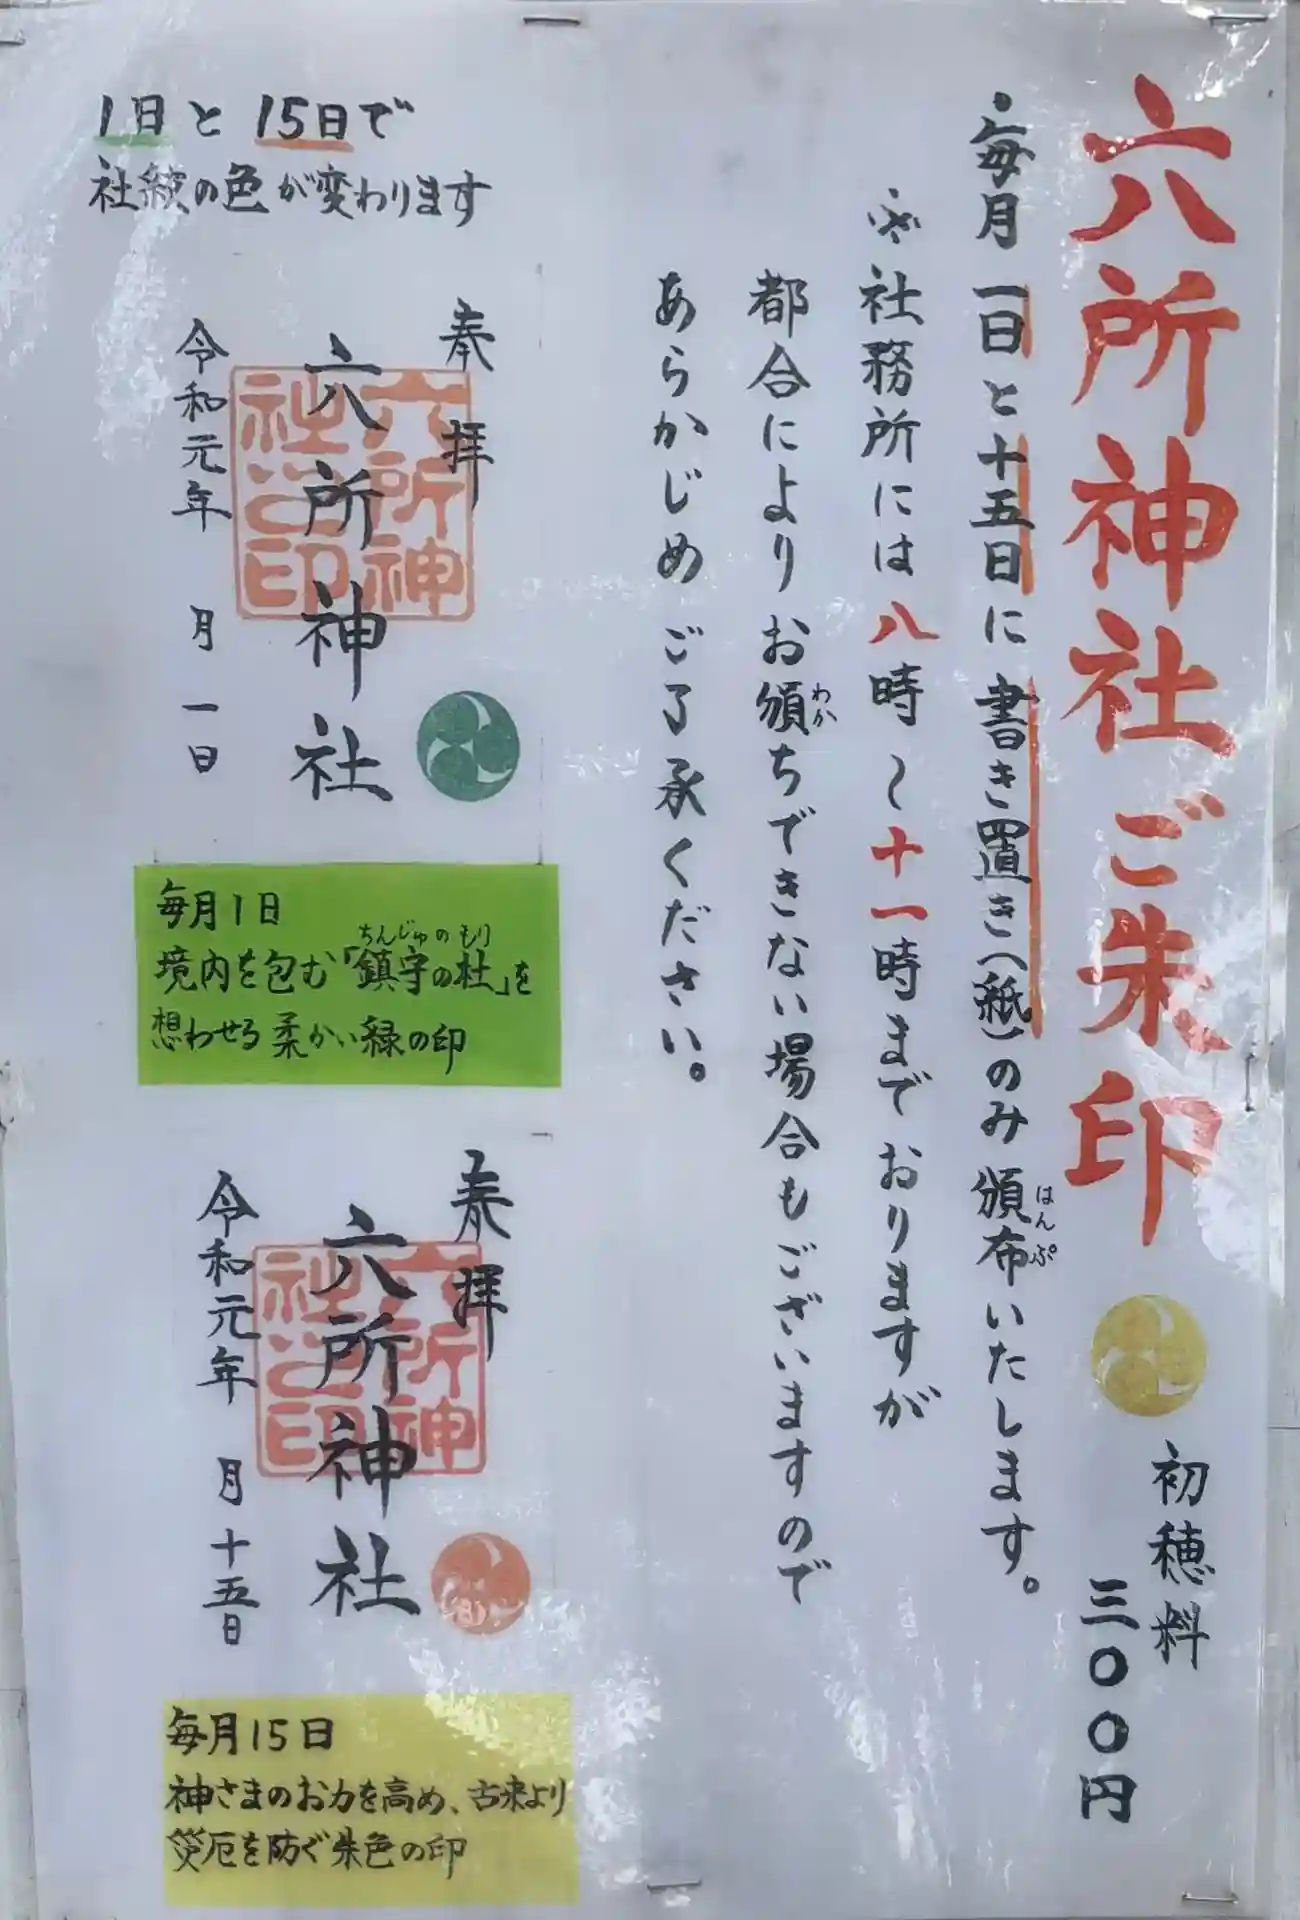 六所神社ご朱印
初穂料
三〇〇円
・毎月一日と十五日に書き置き(紙)のみ頒布いたします。
はんぷ
※社務所には八時～十一時までおりますが
都合によりお頒ちできない場合もございますので
わか
あらかじめご了承ください。
1日と15日で
社紋の色が変わります
奉拝
六所神社
令和元年 月一日
六所神
社之印
毎月1日
境内を包む「鎮守の杜」を
ちんじゅのもり
想わせる柔かい緑の印
奉拝
六所神社
令和元年 月十五日
六所神
社之印
毎月15日
神さまのお力を高め、古来より
災厄を防ぐ朱色の印